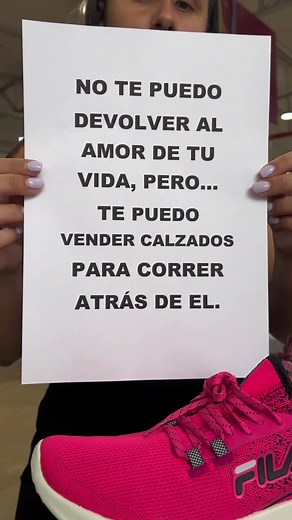 NO TE PUEDO
DEVOLVER AL
AMOR DE TU
VIDA, PERO...
TE PUEDO
VENDER CALZADOS
PARA CORRER
ATRÁS DE EL.
FILA